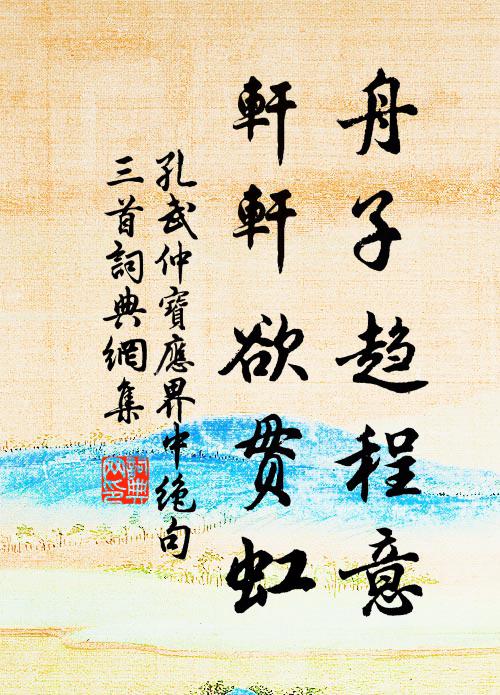 舟子趋程意
軒軒欲贯虹
孔武仲寶應界中绝句
三首詞典網集